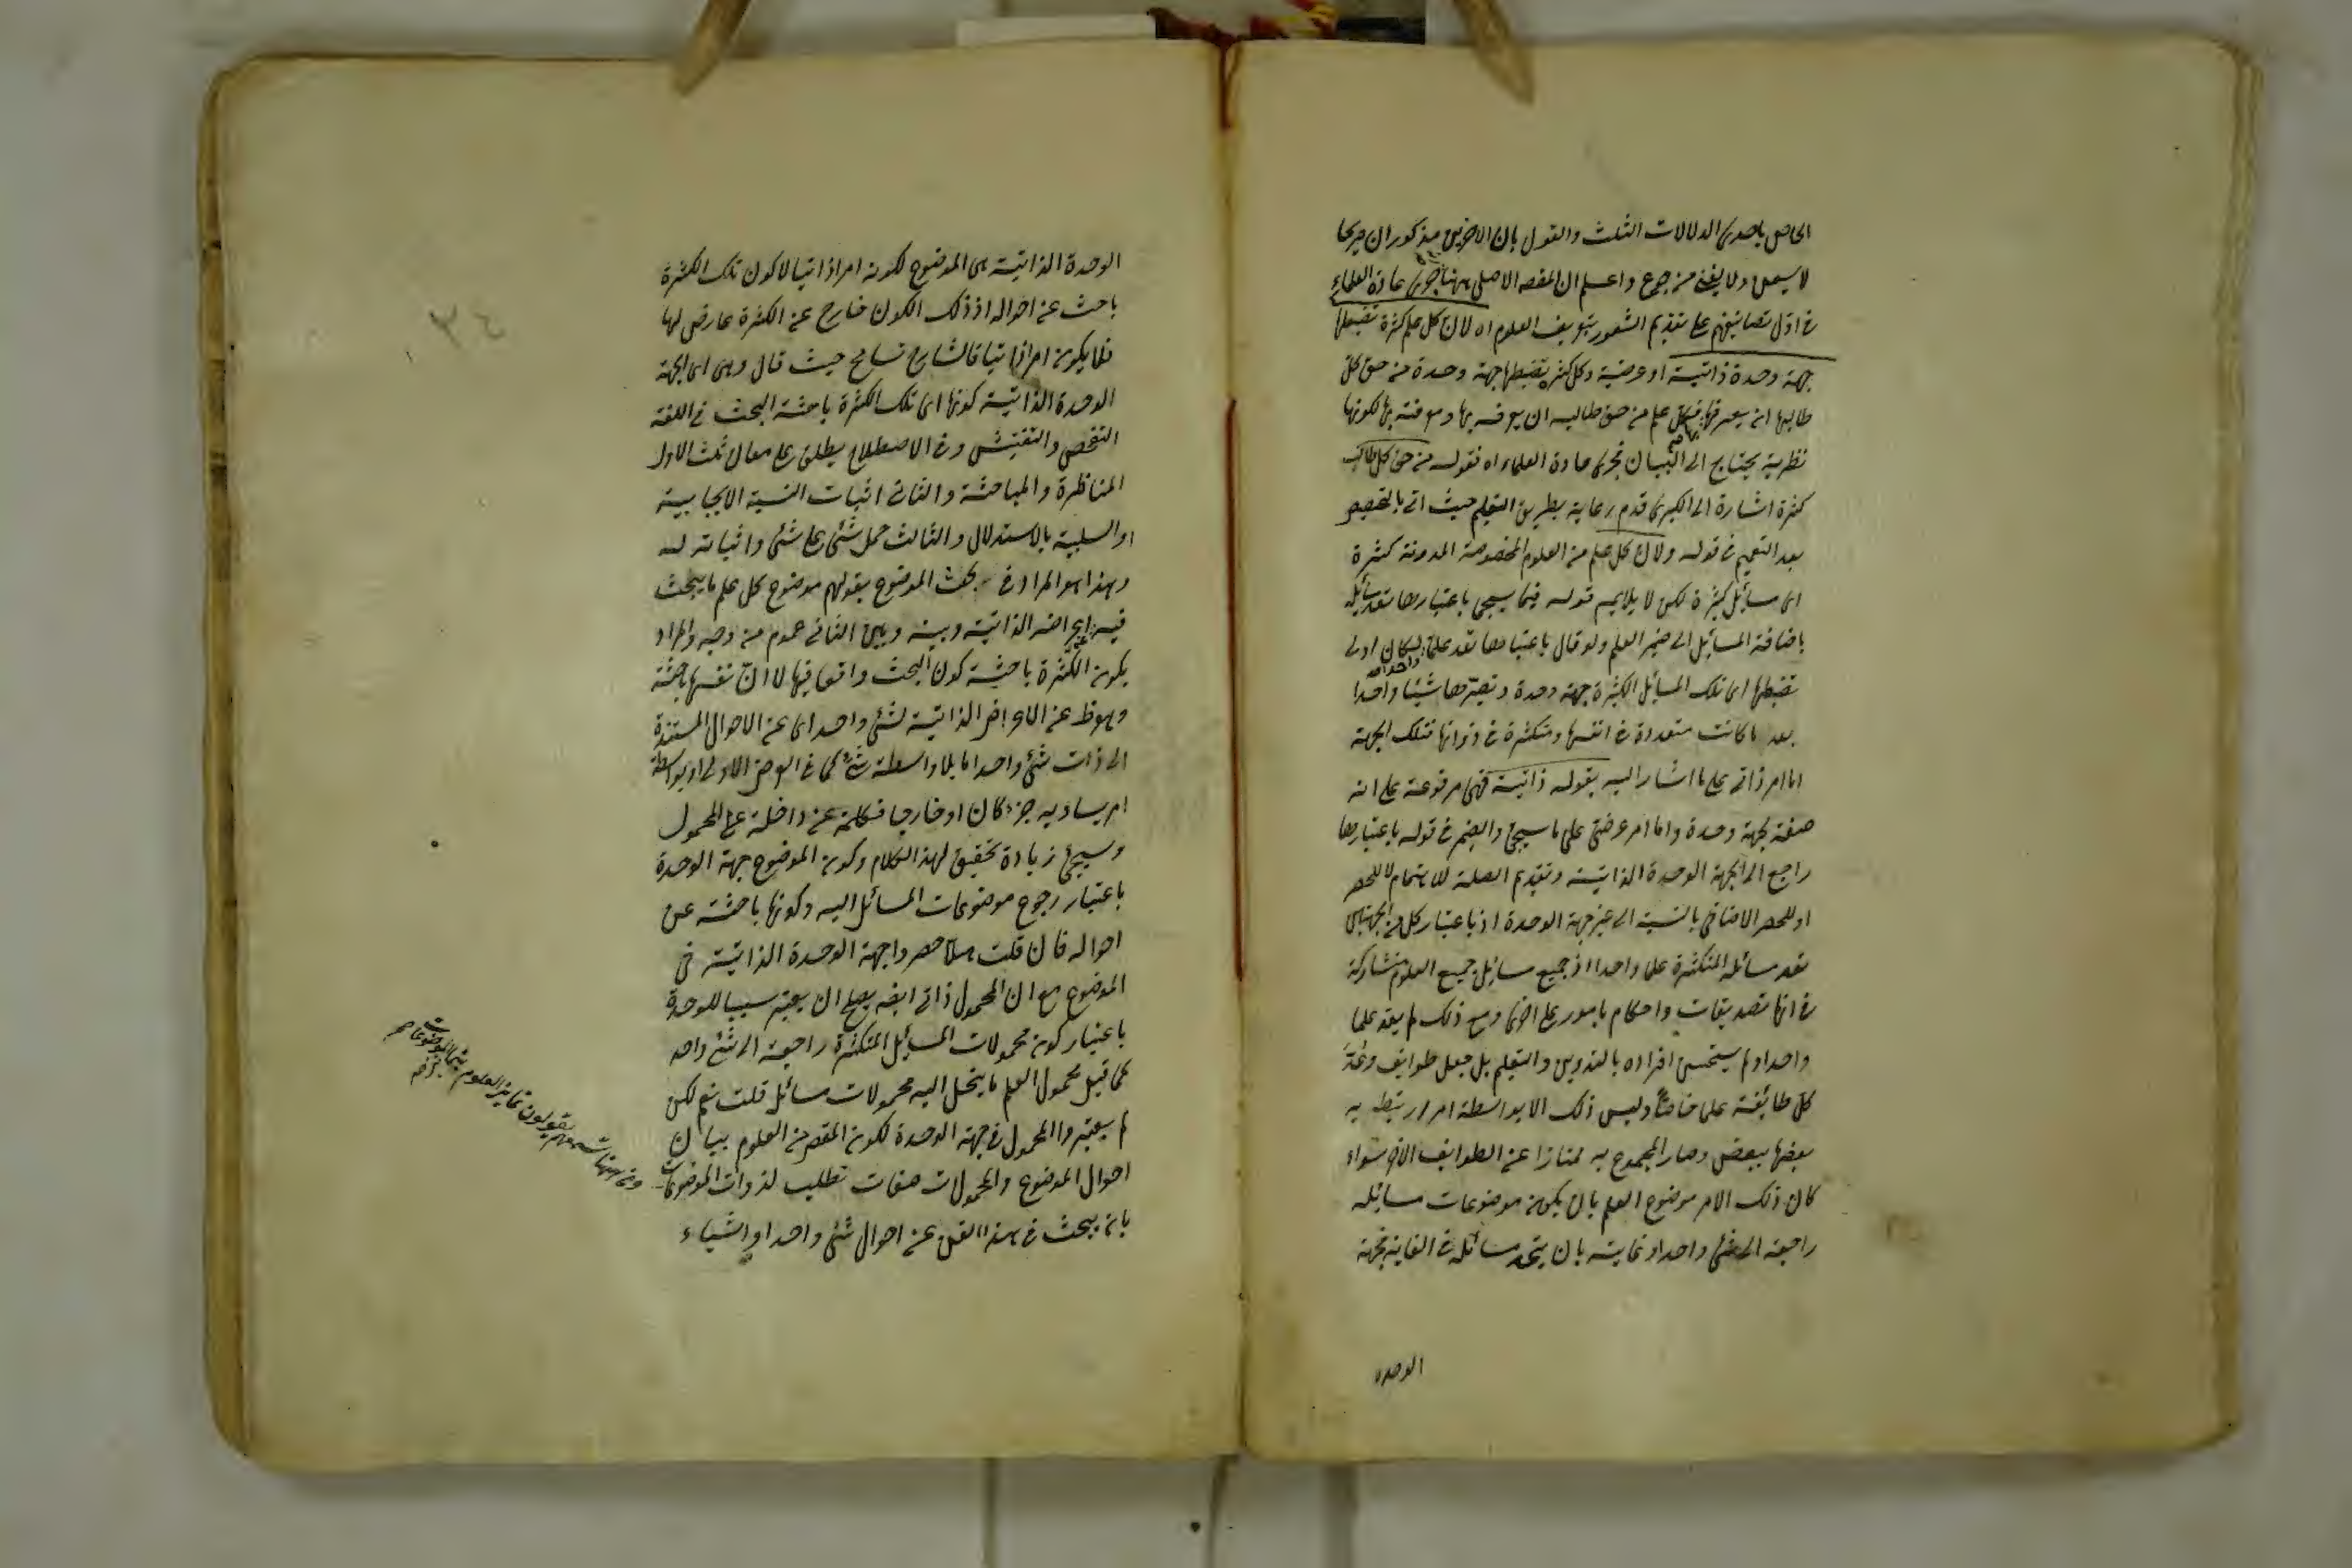 الحاصل باحدى الدلالات الثلث والقول بان الاخرين مذكوران صريحا
لا يسمن ولا يغني من جوع واعلم ان المقصد الاصلي ههنا جرى عادة العلماء
في اول تصانيفهم على تقديم الشعور بتعريف العلوم اه لان كل علم كثرة تضبطها
جهة وحدة ذاتية او عرضية وكل كثرة تضبطها جهة وحدة من حق كل
طالبها ان يعرفها فكل علم من حق طالبه ان يعرفه بها ومعرفته بها لكونها
نظرية يحتاج الى البيان فجرى عادة العلماء اه فقوله من حق كل طالب
كثرة اشارة الى الكبرى قدم رعاية بطريق التعليم حيث اتى بالتخصيص
بعد التعميم في قوله ولان كل علم من العلوم المخصوصة المدونة كثرة
اى مسائل كثيرة لكن لا يلايم قوله فيما سيجى باعتبارها تعد مسائله
باضافة المسائل الى ضمير العلم ولو قال باعتبارها تعد علما واحدا لكان اولى
تضبطها اى تلك المسائل الكثيرة جهة وحدة وتصيرها شيئا واحدا
بعد ما كانت متعددة في انفسها ومتكثرة في ذواتها فتلك الجهة
اما امر ذاتى على ما اشار اليه بقوله ذاتية فهى مرفوعة على انه
صفة لجهة وحدة واما امر عرضى على ما سيجئ والضمير في قوله باعتبارها
راجع الى الجهة الوحدة الذاتية وتقديم الصلة للاهتمام لا للحصر
او للحصر الاضافي بالنسبة الى غير جهة الوحدة اذ باعتبار كل من الجهتين
تعد مسائله المتكثرة علما واحدا اذ جميع مسائل جميع العلوم متشاركة
في انها تصديقات واحكام بامور على اخرى ومع ذلك لم يعد علما
واحدا ولم يستحسن افراده بالتدوين والتعليم بل جعل طوايف وعد
كل طائفة علما خاصا وليس ذلك الا بواسطة امر ارتبط به
بعضها ببعض وصار المجموع به ممتازا عن الطوايف الاخر سواء
كان ذلك الامر موضوع العلم بان يكون موضوعات مسائله
راجعة الى شئ واحد او غايته بان يتحد مسائله في الغاية فجهة
الوحدة
الوحدة الذاتية هى الموضوع لكونه امرا ذاتيا لا كون تلك الكثرة
باحث عن احواله اذ ذلك الكون خارج عن الكثرة عارض لها
فلا يكون امرا ذاتيا فالشارح تسامح حيث قال وهى اى الجهة
الوحدة الذاتية كونها اى تلك الكثرة باحثة البحث في اللغة
التفحص والتفتيش وفي الاصطلاح يطلق على معان ثلث الاول
المناظرة والمباحثة والثانى اثبات النسبة الايجابية
او السلبية بالاستدلال والثالث حمل شئ على شئ واثباته له
وهذا هو المراد في بحث الموضوع بقولهم موضوع كل علم ما يبحث
فيه عن اعراضه الذاتية وبينه وبين الثانى عموم من وجه والمراد
بكون الكثرة باحثة كون البحث واقعا فيها لا ان نفسها باحثة
وهو ظ عن الاعراض الذاتية لشئ واحد اى عن الاحوال المستندة
الى ذات شئ واحد اما بلا واسطة شئ كما في العرض الاولى او بواسطة
امر يساويه جزء كان او خارجا فكلمة عن داخلة على المحمول
وسيجئ زيادة تحقيق لهذا الكلام وكون الموضوع جهة الوحدة
باعتبار رجوع موضوعات المسائل اليه وكونها باحثة عن
احواله فان قلت هلا حصروا جهة الوحدة الذاتية في
الموضوع مع ان المحمول ذاتى ايضه يصلح ان يعتبر سببا للوحدة
باعتبار كون محمولات المسائل المتكثرة راجعة الى شئ واحد
كما قيل محمول العلم ما ينحل اليه محمولات مسائل قلت نعم لكن
لم يعتبروا المحمول في جهة الوحدة لكون المقصد من العلوم بيان
احوال الموضوع والمحمولات صفات تطلب لذوات الموضوعات
بان يبحث في هذا الفن عن احوال شئ واحد او اشياء
ومن ههنا تسمعهم يقولون تمايز العلوم بتمايز الموضوعات
٣٤